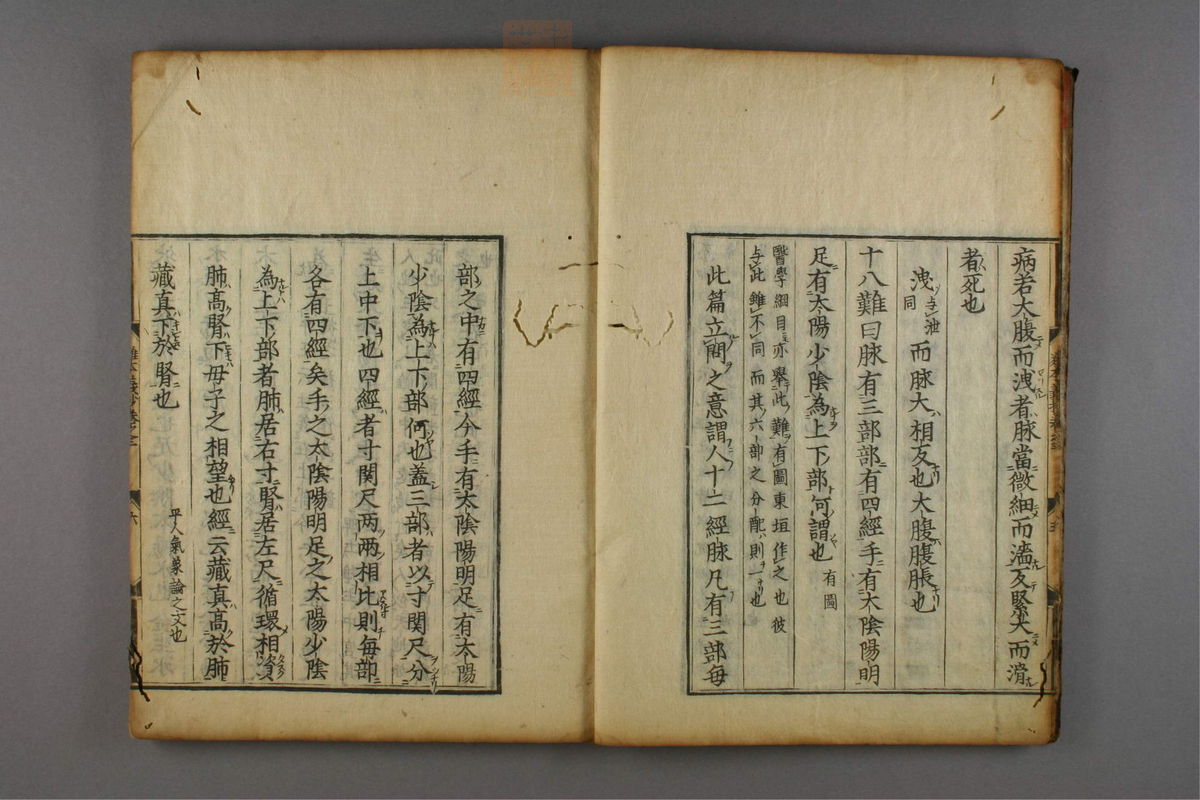 病若大腹而洩者脉當微細而濇反緊大而滑
者死也
洩與泄同而脉大相反也大腹腹脹也
十八難曰脉有三部部有四經手有太陰陽明
足有太陽少陰為上下部何謂也有圖
醫學綱目亦舉此難有圖東垣作之也彼
與此雖不同而其六部之分配則一也
此篇立問之意謂人十二經脉凡有三部每
部之中有四經今手有太陰陽明足有太陽
少陰為上下部何也蓋三部者以寸関尺分
上中下也四經者寸関尺两两相比則每部
各有四經矣手之太陰陽明足之太陽少陰
為上下部者肺居右寸腎居左尺循環相資
肺髙腎下母子之相望也經云藏真髙於肺
藏真下於腎也平人氣象論之文也
六